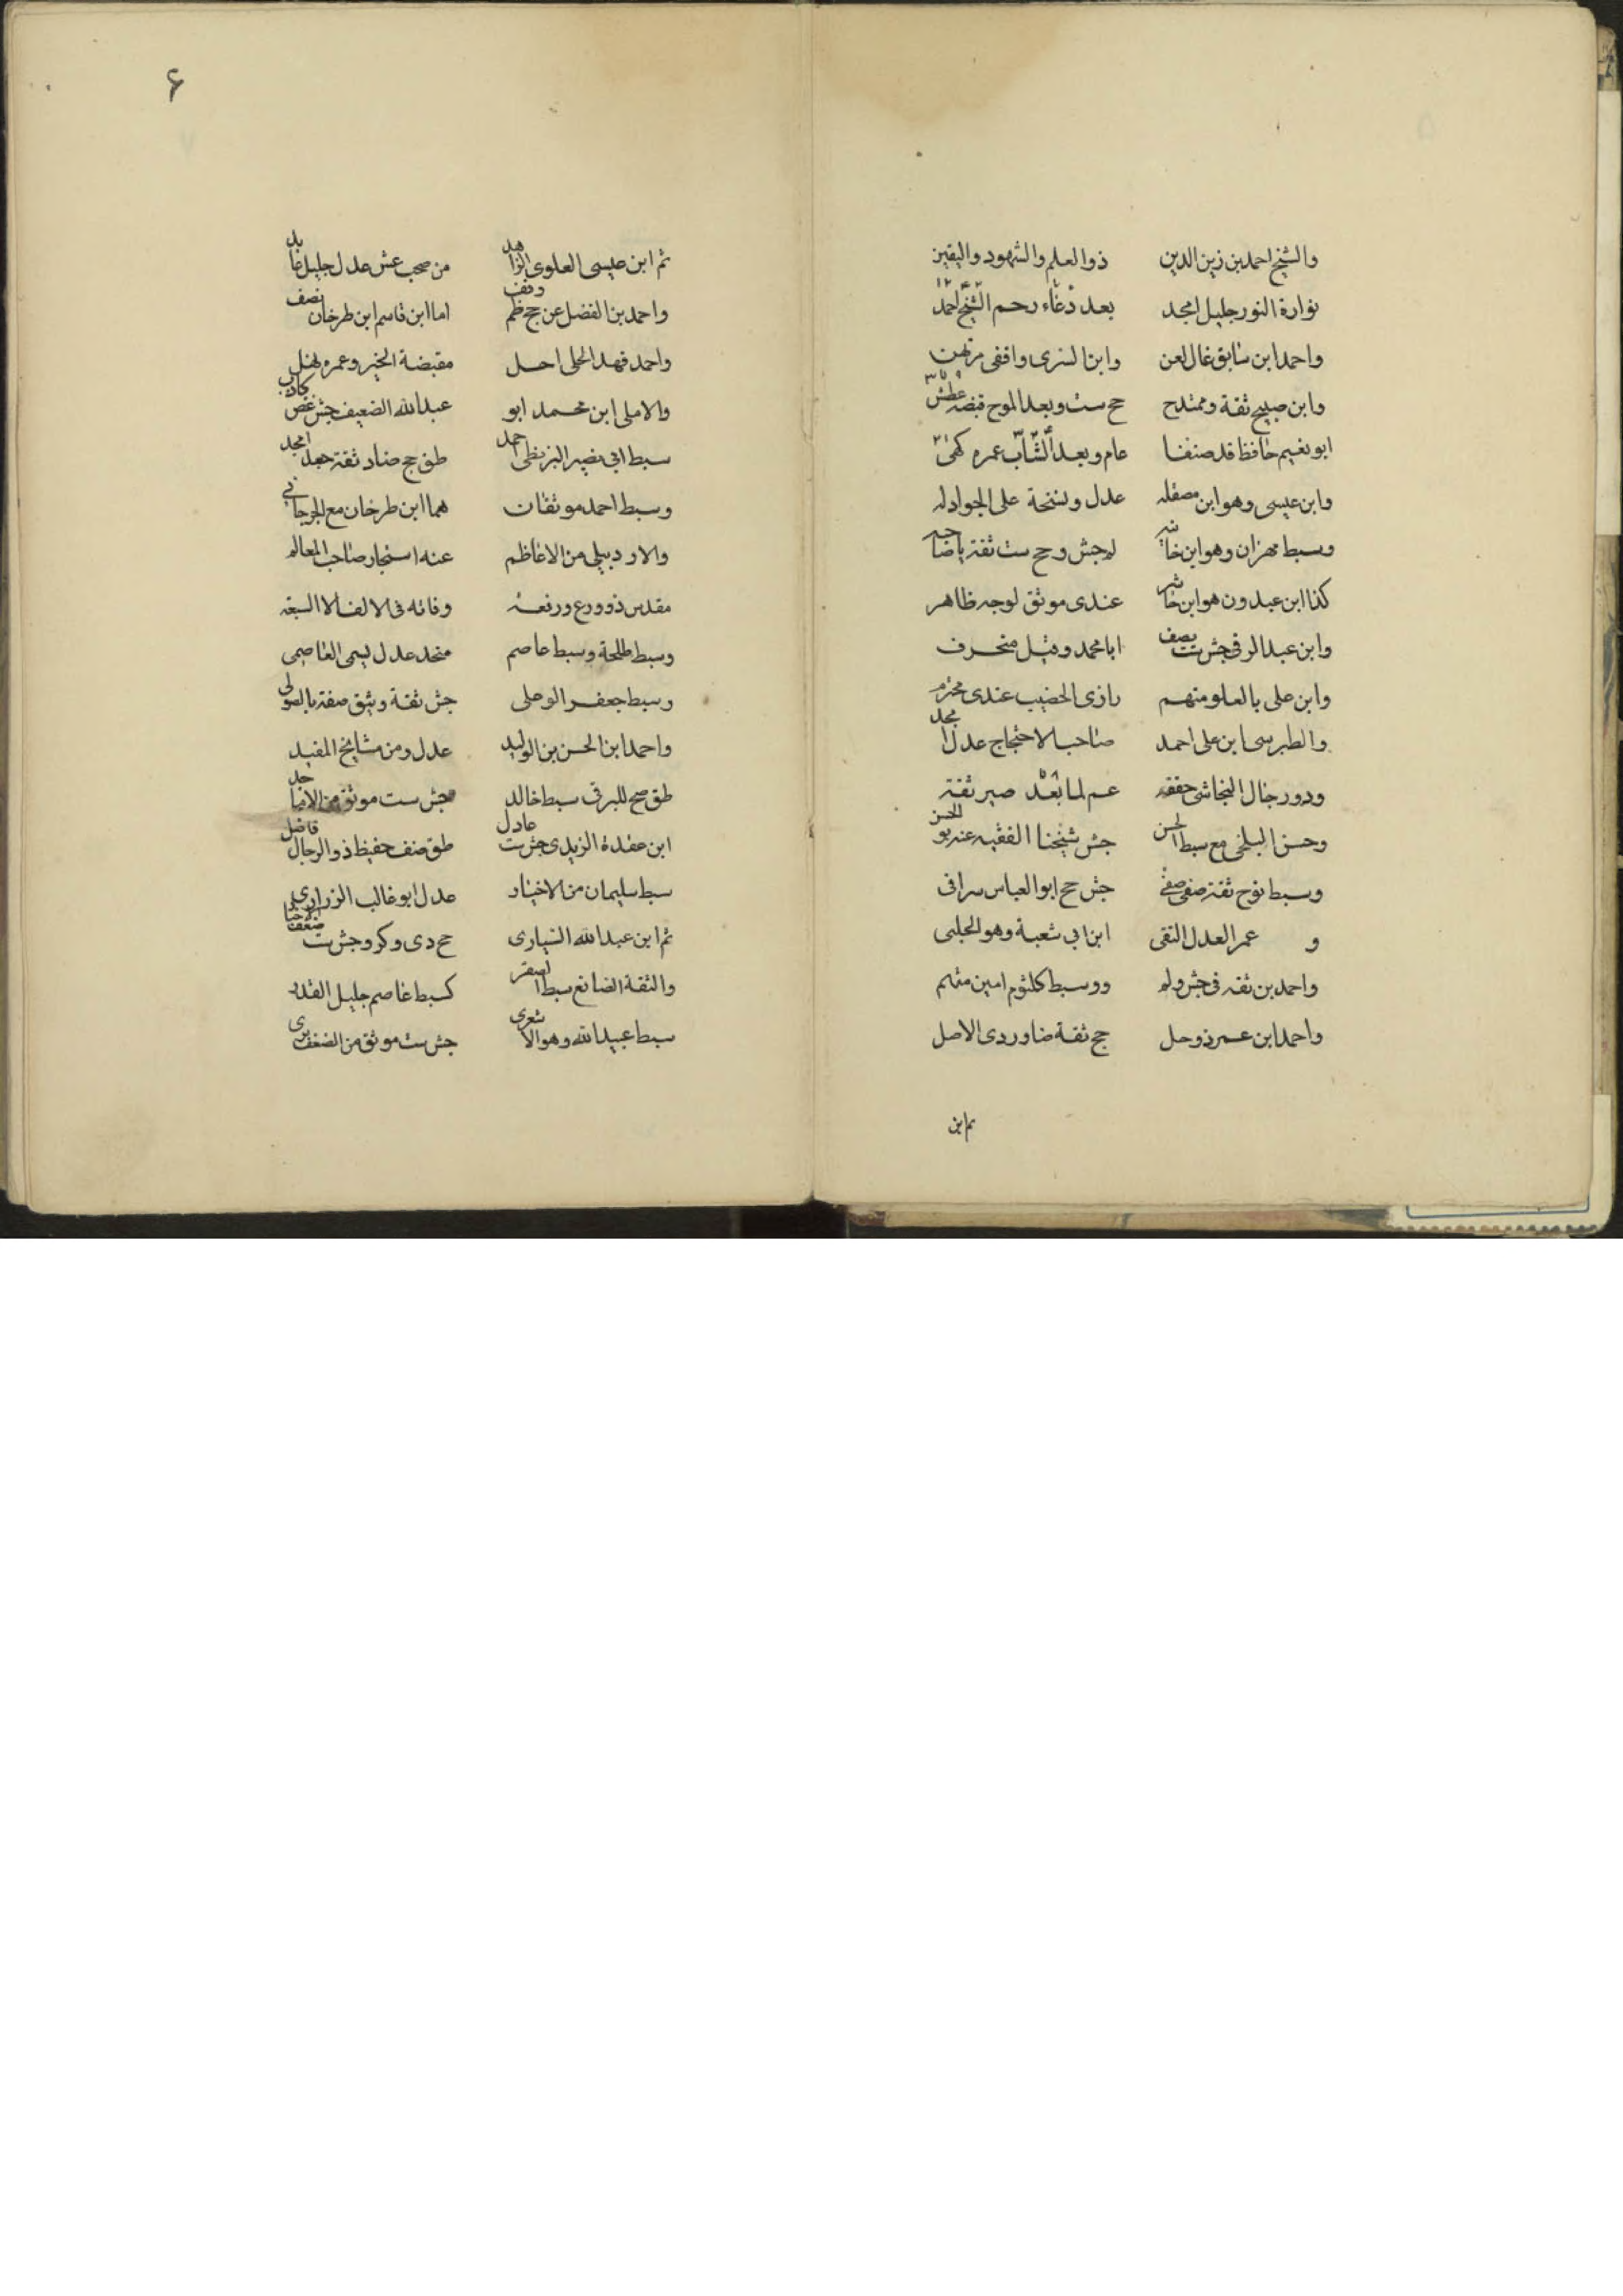 والشيخ احمد بن زين الدين ذو العلم والشهود واليقين
نوارة النور جليل امجد بعد دعاء رحم الشيخ احمد
واحمد ابن سابق غال لعن وابن السرى واقفى
وابن صبيح ثقة وممتدح جح ست وبعد الموح قبضه عطش
ابو نعيم حافظ قد صنفا عام وبعد الشاب عمره كفى
وابن عيسى وهو ابن مصقله عدل ونسخة على الجواد له
وسبط مهران وهو ابن خانبه له جش وجح ست ثقة
كذا ابن عبدون هو ابن حاشر عندى موثق لوجه ظاهر
وابن عبد البرقى جش ست يصف ابا محمد وقيل منحرف
وابن على بالعلو متهم رازى الخضيب عندى محترم
والطبرسى ابن على احمد صاحب الاحتجاج عدل امجد
وذو رجال النجاشى حققه عم لما بعد صير ثقته
وحسن البلخى مع سبط الحسن جش شيخنا الفقيه عنه
وسبط نوح ثقة صفى جش جح ابو العباس سرافى
و عمر العدل التقى ابن ابى شعبة وهو الحلبى
واحمد بن ثقه فى جش وله وسبط كلثوم امين متهم
واحمد ابن عمر ذو حل جح ثقة الاصل
ثم ابن
۶
ثم ابن عيسى العلوى الزاهد من صحب عش عدل جليل عابد
واحمد بن الفضل عن جح ظم وقف اما ابن قاسم ابن طرخان نصف
واحمد فهد الحلى اجل مقبضة الخير وعمره
والاملى ابن محمد ابو عبد الله الضعيف جش غض كاذب
سبط ابى نصير البزنطى احمد طق جح ضا د ثقة جعل امجد
وسبط احمد موثقان هما ابن طرخان مع الجرجانى
والاردبيلى من الاعاظم عنه استجار صاحب المعالم
مقدس ذو ورع ورفعة وفاته فى الالف الا السبعة
وسبط طلحة وسبط عاصم متحد عدل يسمى العاصمى
وسبط جعفر الو على جش ثقة وثيق صفة بالصولى
واحمد ابن الحسن بن الوليد عدل ومن مشايخ المفيد
طق صح للبرقى سبط خالد جش ست موثق من الاماجد
ابن عقدة الزيدى جش ست عادل طق صنف حفيظ ذو الرجال فاضل
سبط سليمان من الاخيار عدل ابو غالب الزرارى
ثم ابن عبد الله السيارى جح دى وكر وجش ست
والثقة الصائغ سبط الصقر كسبط عاصم جليل القدر
سبط عبيد الله وهو الاشعرى جش ست موثق من الضعف برى